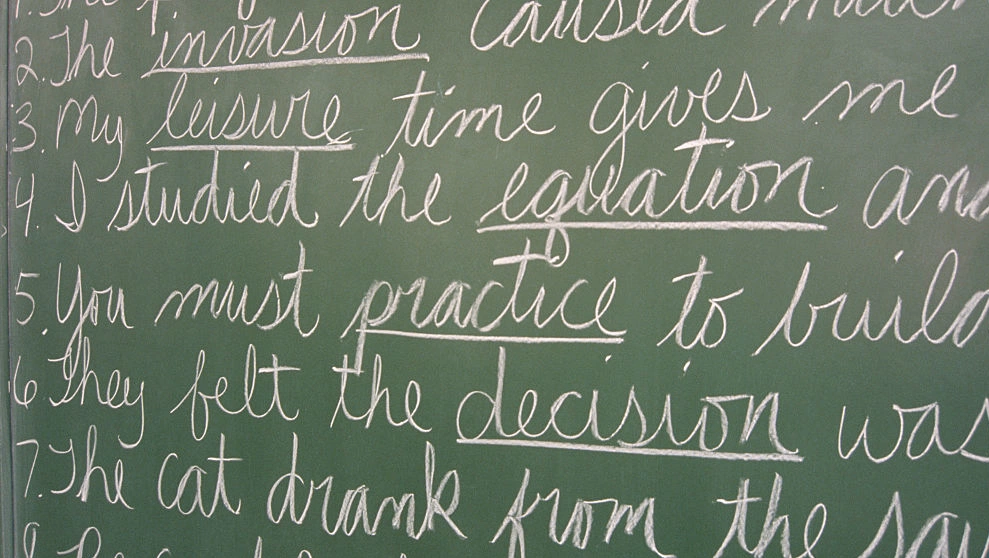 2. The invasion caused
3. My leisure time gives me
4. I studied the equation
5. You must practice to build
6 They felt the decision was
7. The cat drank from the